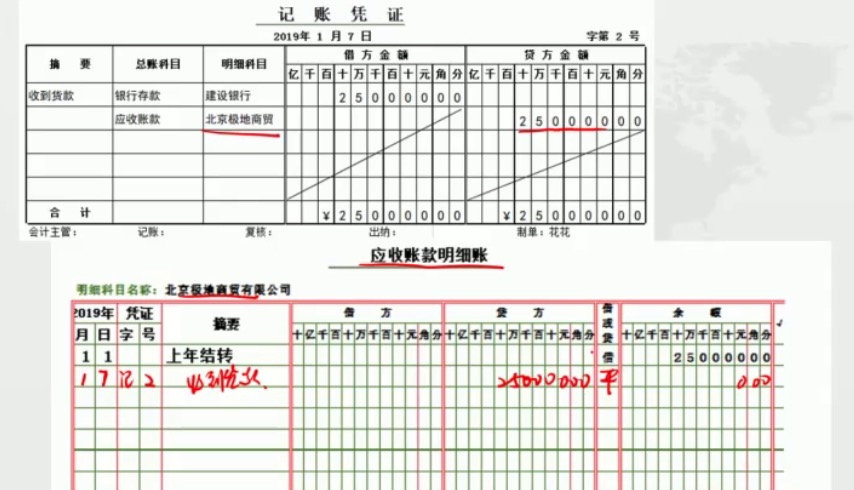 记账凭证
2019年 1 月 7 日 字第 2 号
摘 要 总账科目 明细科目 借方金额 贷方金额
亿 千 百 十 万 千 百 十 元 角 分 亿 千 百 十 万 千 百 十 元 角 分
收到货款 银行存款 建设银行 2 5 0 0 0 0 0 0
应收账款 北京极地商贸 2 5 0 0 0 0 0 0
合 计 ¥ 2 5 0 0 0 0 0 0 ¥ 2 5 0 0 0 0 0 0
会计主管: 记账: 复核: 出纳: 制单: 花花
应收账款明细账
明细科目名称: 北京极地商贸有限公司
2019年 凭证 摘要 借 方 贷 方 借或贷 余 额 √
月 日 字 号 十 亿 千 百 十 万 千 百 十 元 角 分 十 亿 千 百 十 万 千 百 十 元 角 分 十 亿 千 百 十 万 千 百 十 元 角 分
1 1 上年结转 借 2 5 0 0 0 0 0 0
1 7 记 2 收到货款 25000000 平 000